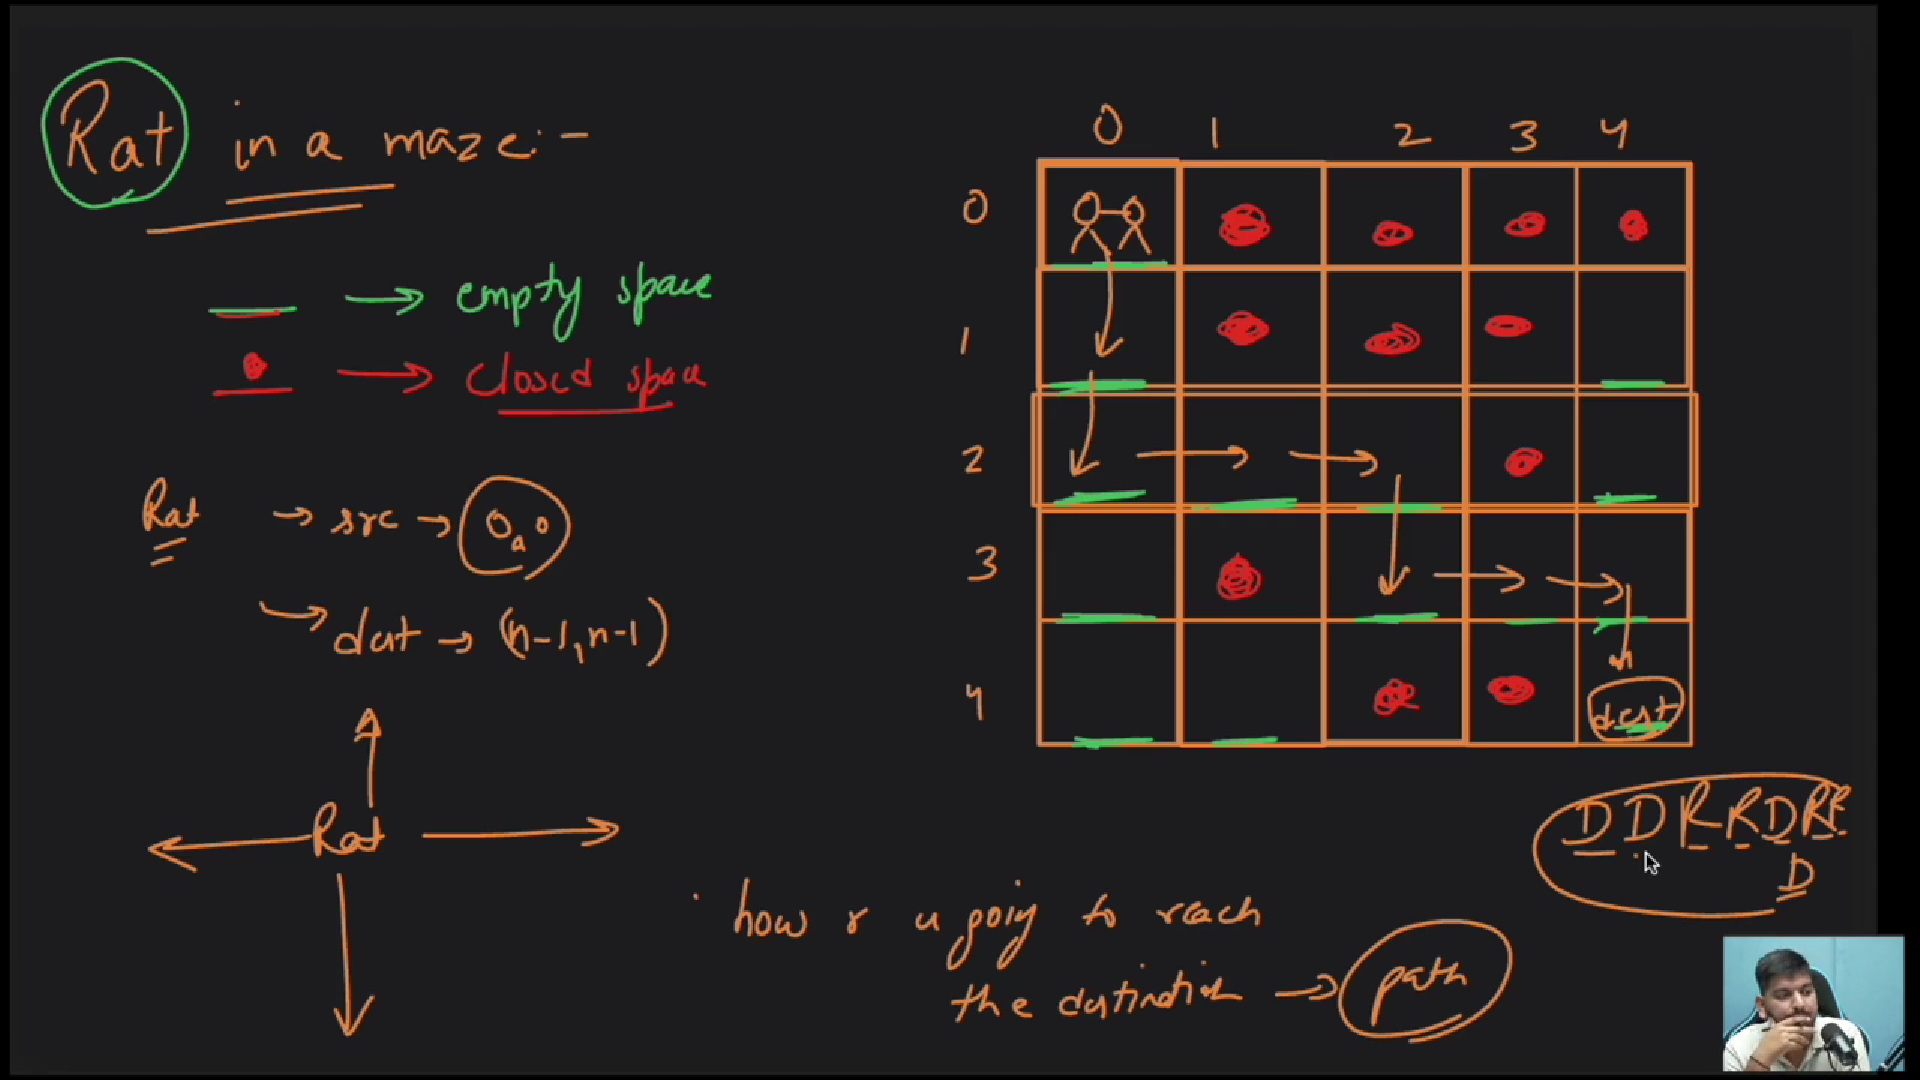 Rat in a maze:-
→ empty space
→ closed space
Rat → src → 0,0
→ dest → (n-1,n-1)
Rat
0 1 2 3 4
0
1
2
3
4
dest
D D R R D R R
D
how r u going to reach
the destination → path